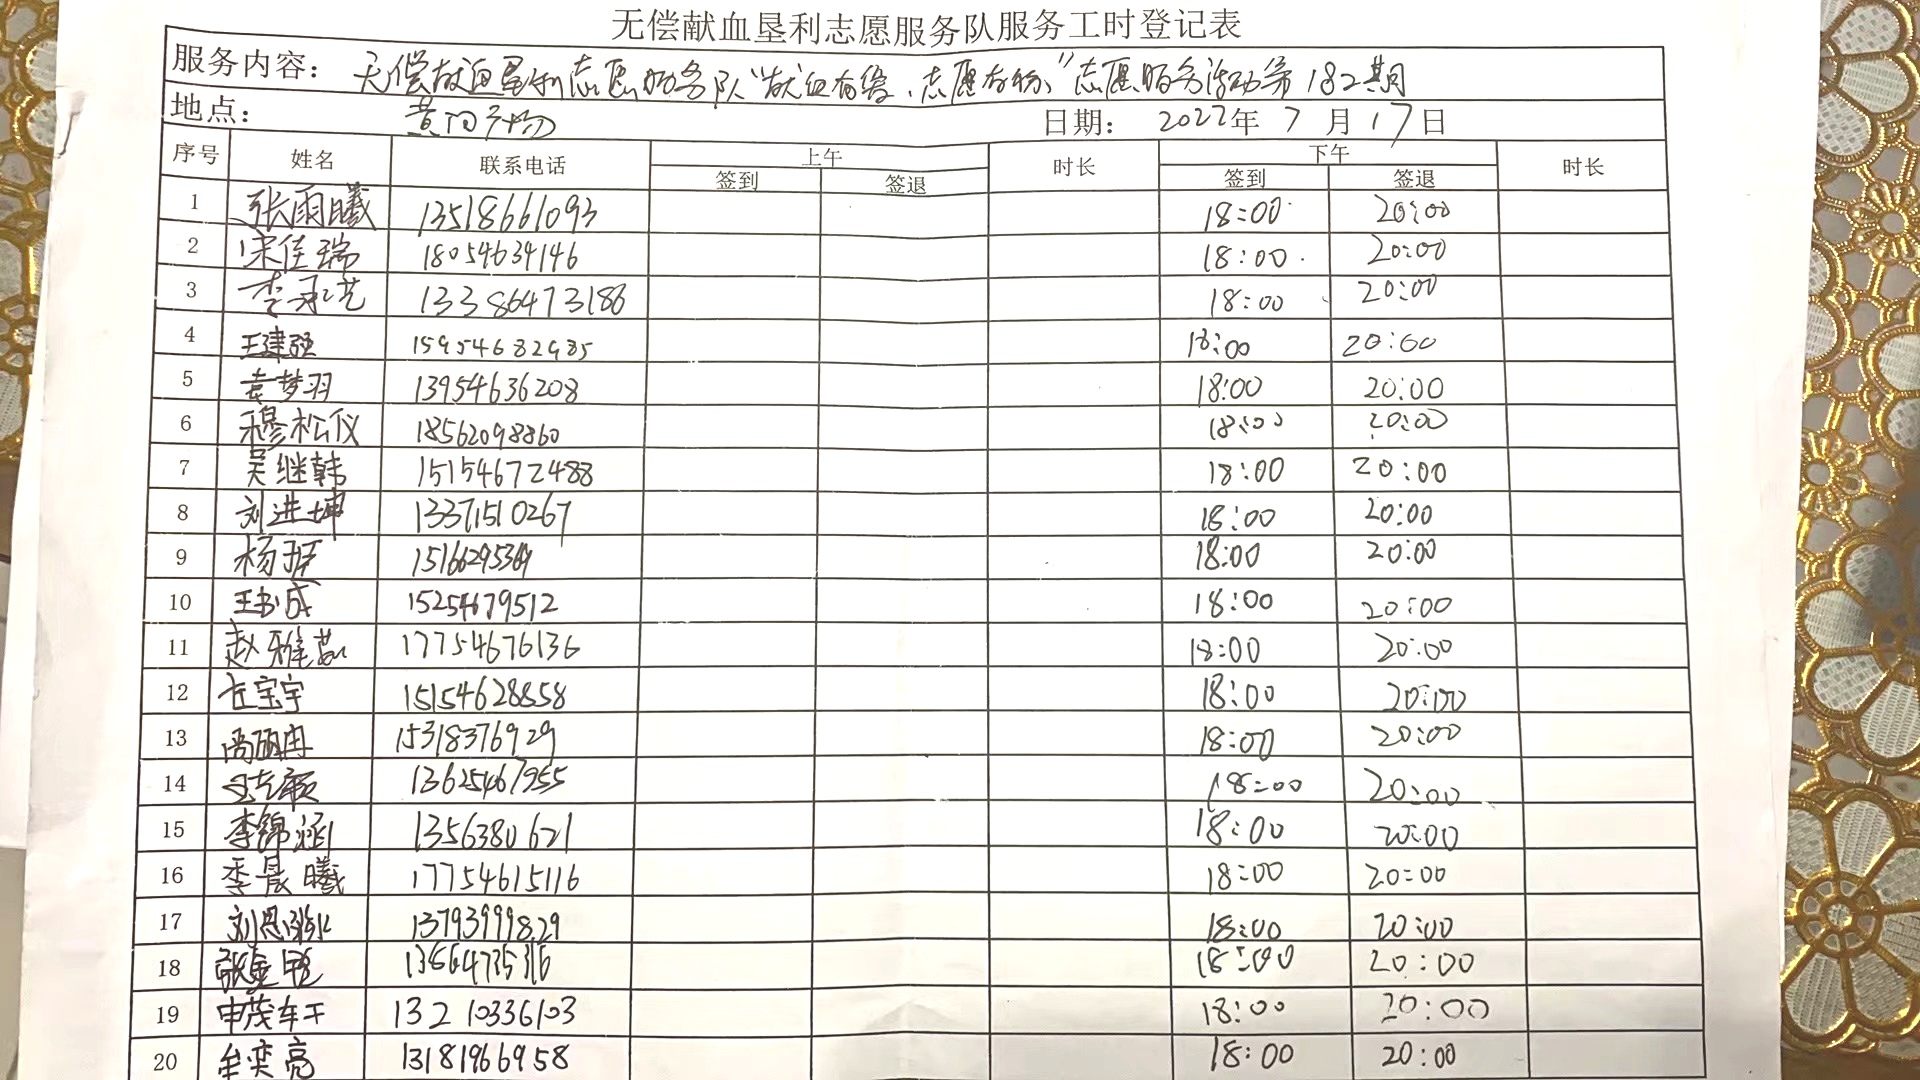 无偿献血垦利志愿服务队服务工时登记表
服务内容： 无偿献血垦利志愿服务队“献血有爱、志愿有你”志愿服务活动第182期
地点： 黄河广场 日期： 2022年 7 月 17日
序号 姓名 联系电话 上午 时长 下午 时长
签到 签退 签到 签退
1 张雨曦 13518661093 18:00 20:00
2 宋佳瑞 18054634146 18:00 20:00
3 李承艺 13386473188 18:00 20:00
4 王建强 15954682985 18:00 20:00
5 袁梦羽 13954636208 18:00 20:00
6 穆松仪 18562098860 18:00 20:00
7 吴继韩 15154672488 18:00 20:00
8 刘进坤 13371510267 18:00 20:00
9 杨 18:00 20:00
10 王 成 15254679512 18:00 20:00
11 赵雅茹 17754676136 18:00 20:00
12 宝宇 15154628858 18:00 20:00
13 尚丽冉 15318376929 18:00 20:00
14 13625467955 18:00 20:00
15 李锦涵 1356380621 18:00 20:00
16 季晨曦 17754615116 18:00 20:00
17 刘恩 13793999829 18:00 20:00
18 张 18:00 20:00
19 申茂车干 13210336103 18:00 20:00
20 牟奕亮 13181966958 18:00 20:00